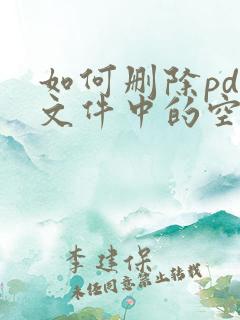 如何删除pd
文件中的空
李建保
未经同意禁止转载